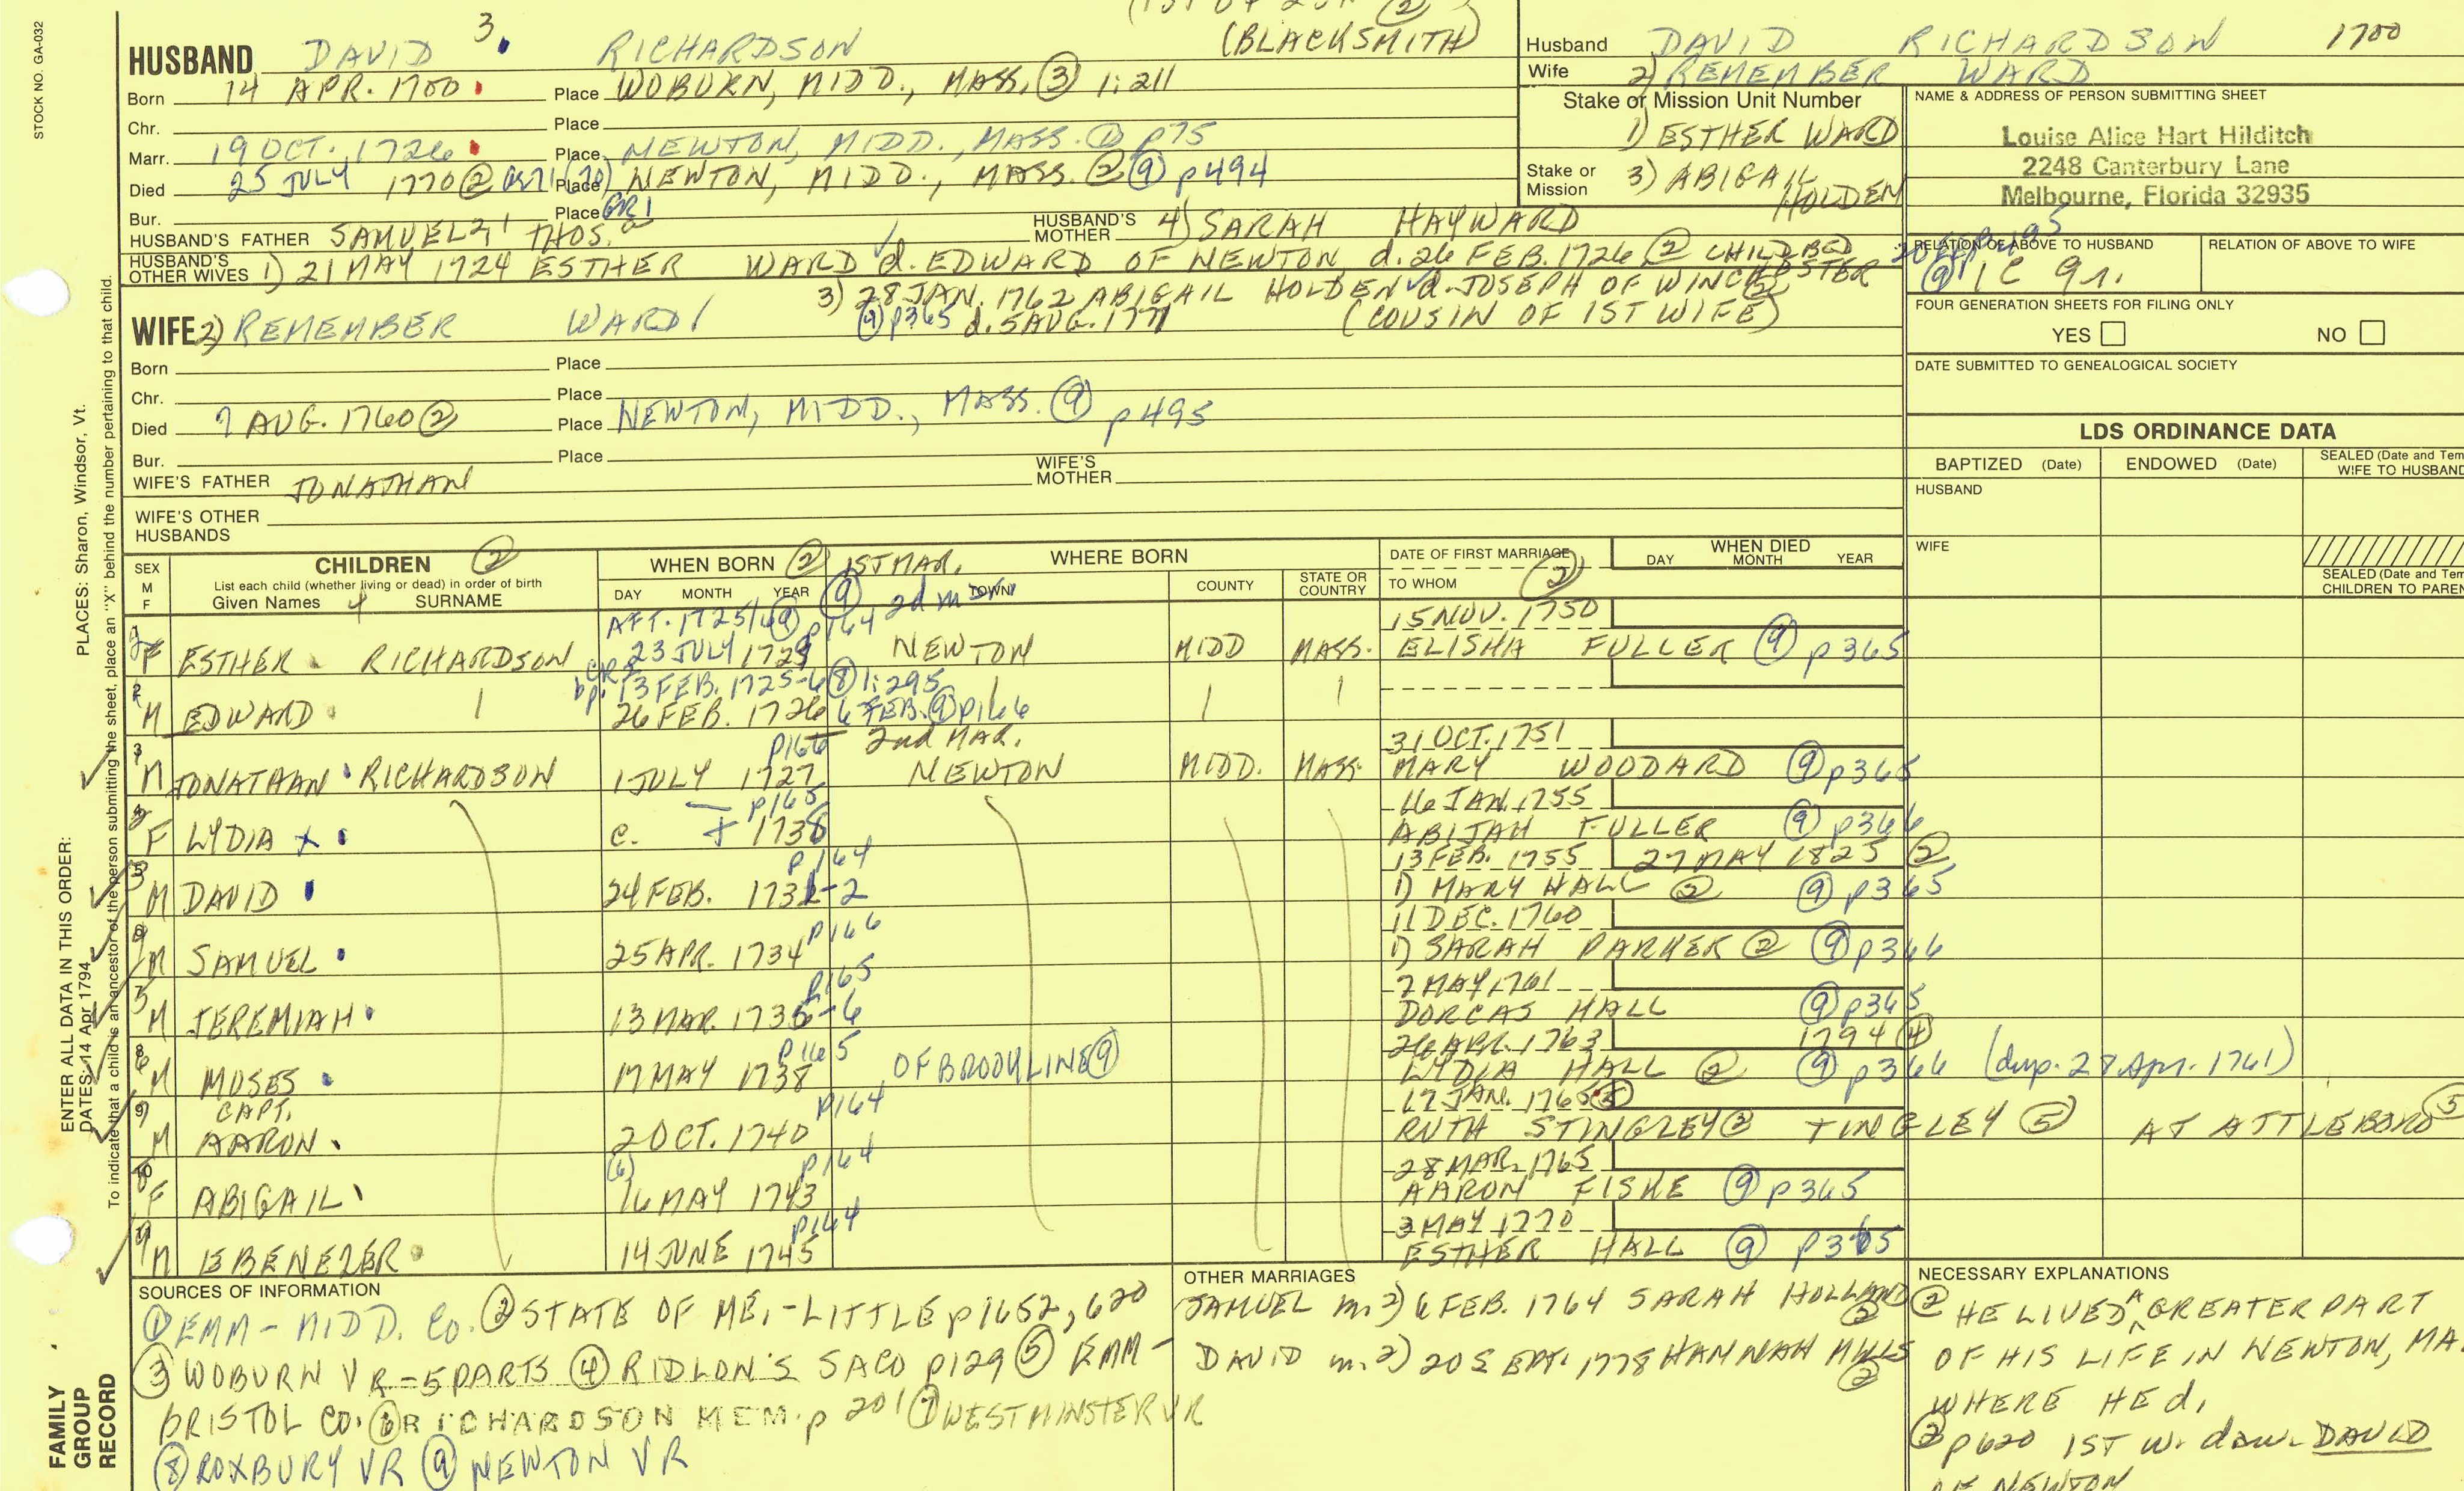 STOCK NO. GA-032
(BLACKSMITH)
HUSBAND DAVID 3. RICHARDSON
Born 14 APR. 1700 Place WOBURN, MIDD., MASS. (3) 1:211
Chr. Place
Marr. 19 OCT. 1726 Place NEWTON, MIDD., MASS. (1) p75
Died 25 JULY 1770 (2) Place NEWTON, MIDD., MASS. (2) (9) p494
Bur. Place GR1
HUSBAND'S FATHER SAMUEL THOS. HUSBAND'S MOTHER 4) SARAH HAYWARD
HUSBAND'S OTHER WIVES 1) 21 MAY 1724 ESTHER WARD d. EDWARD OF NEWTON d. 26 FEB. 1726 (2) CHILDBED
3) 28 JAN. 1762 ABIGAIL HOLDEN d. JOSEPH OF WINCHESTER
(9) p365 d. 5 AUG. 1771 (COUSIN OF 1ST WIFE)
WIFE 2) REMEMBER WARD
Born Place
Chr. Place
Died 7 AUG. 1760 (2) Place NEWTON, MIDD., MASS. (9) p495
Bur. Place
WIFE'S FATHER JONATHAN WIFE'S MOTHER
WIFE'S OTHER HUSBANDS
Husband DAVID RICHARDSON 1700
Wife 2) REMEMBER WARD
Stake or Mission Unit Number
1) ESTHER WARD
Stake or Mission 3) ABIGAIL HOLDEN
NAME & ADDRESS OF PERSON SUBMITTING SHEET
Louise Alice Hart Hilditch
2248 Canterbury Lane
Melbourne, Florida 32935
RELATION OF ABOVE TO HUSBAND RELATION OF ABOVE TO WIFE
1C 9r.
FOUR GENERATION SHEETS FOR FILING ONLY
YES NO
DATE SUBMITTED TO GENEALOGICAL SOCIETY
LDS ORDINANCE DATA
BAPTIZED (Date) ENDOWED (Date) SEALED (Date and Tem
WIFE TO HUSBAND
HUSBAND
WIFE
SEALED (Date and Tem
CHILDREN TO PAREN
SEX M F CHILDREN (2) WHEN BORN (2) 1ST MAR. WHERE BORN DATE OF FIRST MARRIAGE WHEN DIED
List each child (whether living or dead) in order of birth
Given Names SURNAME DAY MONTH YEAR (9) 2d m TOWN COUNTY STATE OR COUNTRY TO WHOM (2) DAY MONTH YEAR
AFT. 1725/6 (9) p164 15 NOV. 1750
F ESTHER RICHARDSON 23 JULY 1729 NEWTON MIDD MASS. ELISHA FULLER (9) p365
bp. 13 FEB. 1725-6 (8) 1:295
2 M EDWARD 26 FEB. 1726 6 FEB. (9) p166
p166 2nd MAR. 31 OCT. 1751
3 M JONATHAN RICHARDSON 1 JULY 1727 NEWTON MIDD. MASS. MARY WOODARD (9) p365
p165 16 JAN. 1755
F LYDIA X c. 1738 ABIJAH FULLER (9) p366
p164 13 FEB. 1755 27 MAY 1825 (2)
M DAVID 24 FEB. 1731-2 1) MARY HALL (2) (9) p365
p166 11 DEC. 1760
M SAMUEL 25 APR. 1734 1) SARAH PARKER (2) (9) p366
p165 7 MAY 1761
M JEREMIAH 13 MAR. 1735-6 DORCAS HALL (9) p365
p165 26 APR. 1763 1794 (4)
M MOSES 17 MAY 1738 OF BROOKLINE (9) LYDIA HALL (2) (9) p366 (dup. 28 Apr. 1761)
9 CAPT. p164 17 JAN. 1765 (5)
M AARON 2 OCT. 1740 RUTH STINGLEY (3) TINGLEY (5) AT ATTLEBORO (5)
10 (6) p164 28 MAR. 1765
F ABIGAIL 16 MAY 1743 AARON FISKE (9) p365
p164 3 MAY 1770
M EBENEZER 14 JUNE 1745 ESTHER HALL (9) p365
SOURCES OF INFORMATION
(1) EMM - MIDD. Co. (2) STATE OF ME. - LITTLE p1652, 620
(3) WOBURN VR - 5 PARTS (4) RIDLON'S SACO p129 (5) EMM -
BRISTOL CO. (6) RICHARDSON MEM. p 201 (7) WESTMINSTER VR
(8) ROXBURY VR (9) NEWTON VR
OTHER MARRIAGES
SAMUEL m. 2) 6 FEB. 1764 SARAH HOLLAND (2)
DAVID m. 2) 20 SEPT. 1778 HANNAH MILLS (2)
NECESSARY EXPLANATIONS
(2) HE LIVED ^ GREATER PART
OF HIS LIFE IN NEWTON, MA.
WHERE HE d.
(2) p620 1ST W. dau. DAVID
OF NEWTON
PLACES: Sharon, Windsor, Vt.
ENTER ALL DATA IN THIS ORDER:
DATES: 14 Apr 1794
To indicate that a child is an ancestor of the person submitting the sheet, place an "X" behind the number pertaining to that child.
FAMILY GROUP RECORD